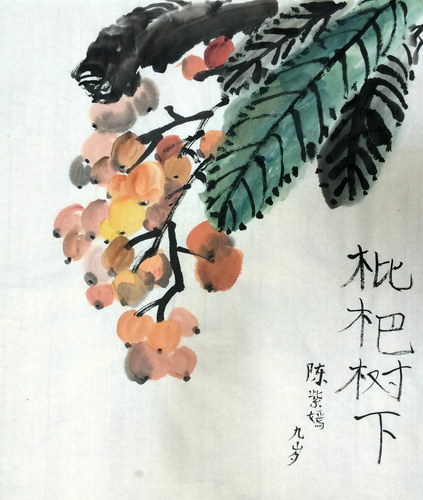 枇杷树下
陈紫嫣
九岁